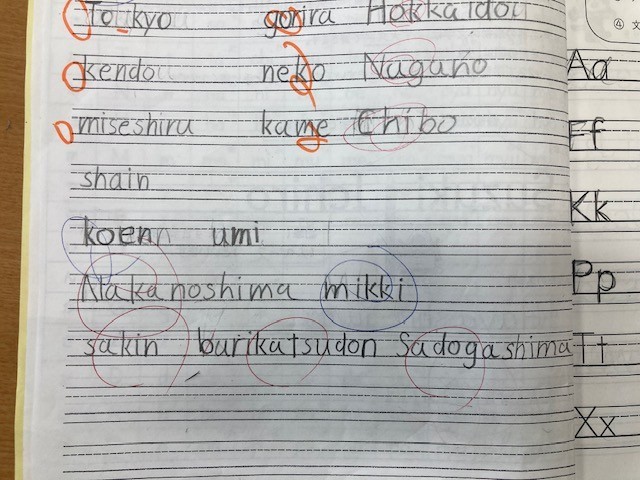 Toukyo gorira Hokkaidou
kendou neko Nagano
miseshiru kame Chibo
shain
koen umi
Nakanoshima mikki
sakin burikatsudon Sadogashima
④ 文
Aa
Ff
Kk
Pp
Tt
Xx